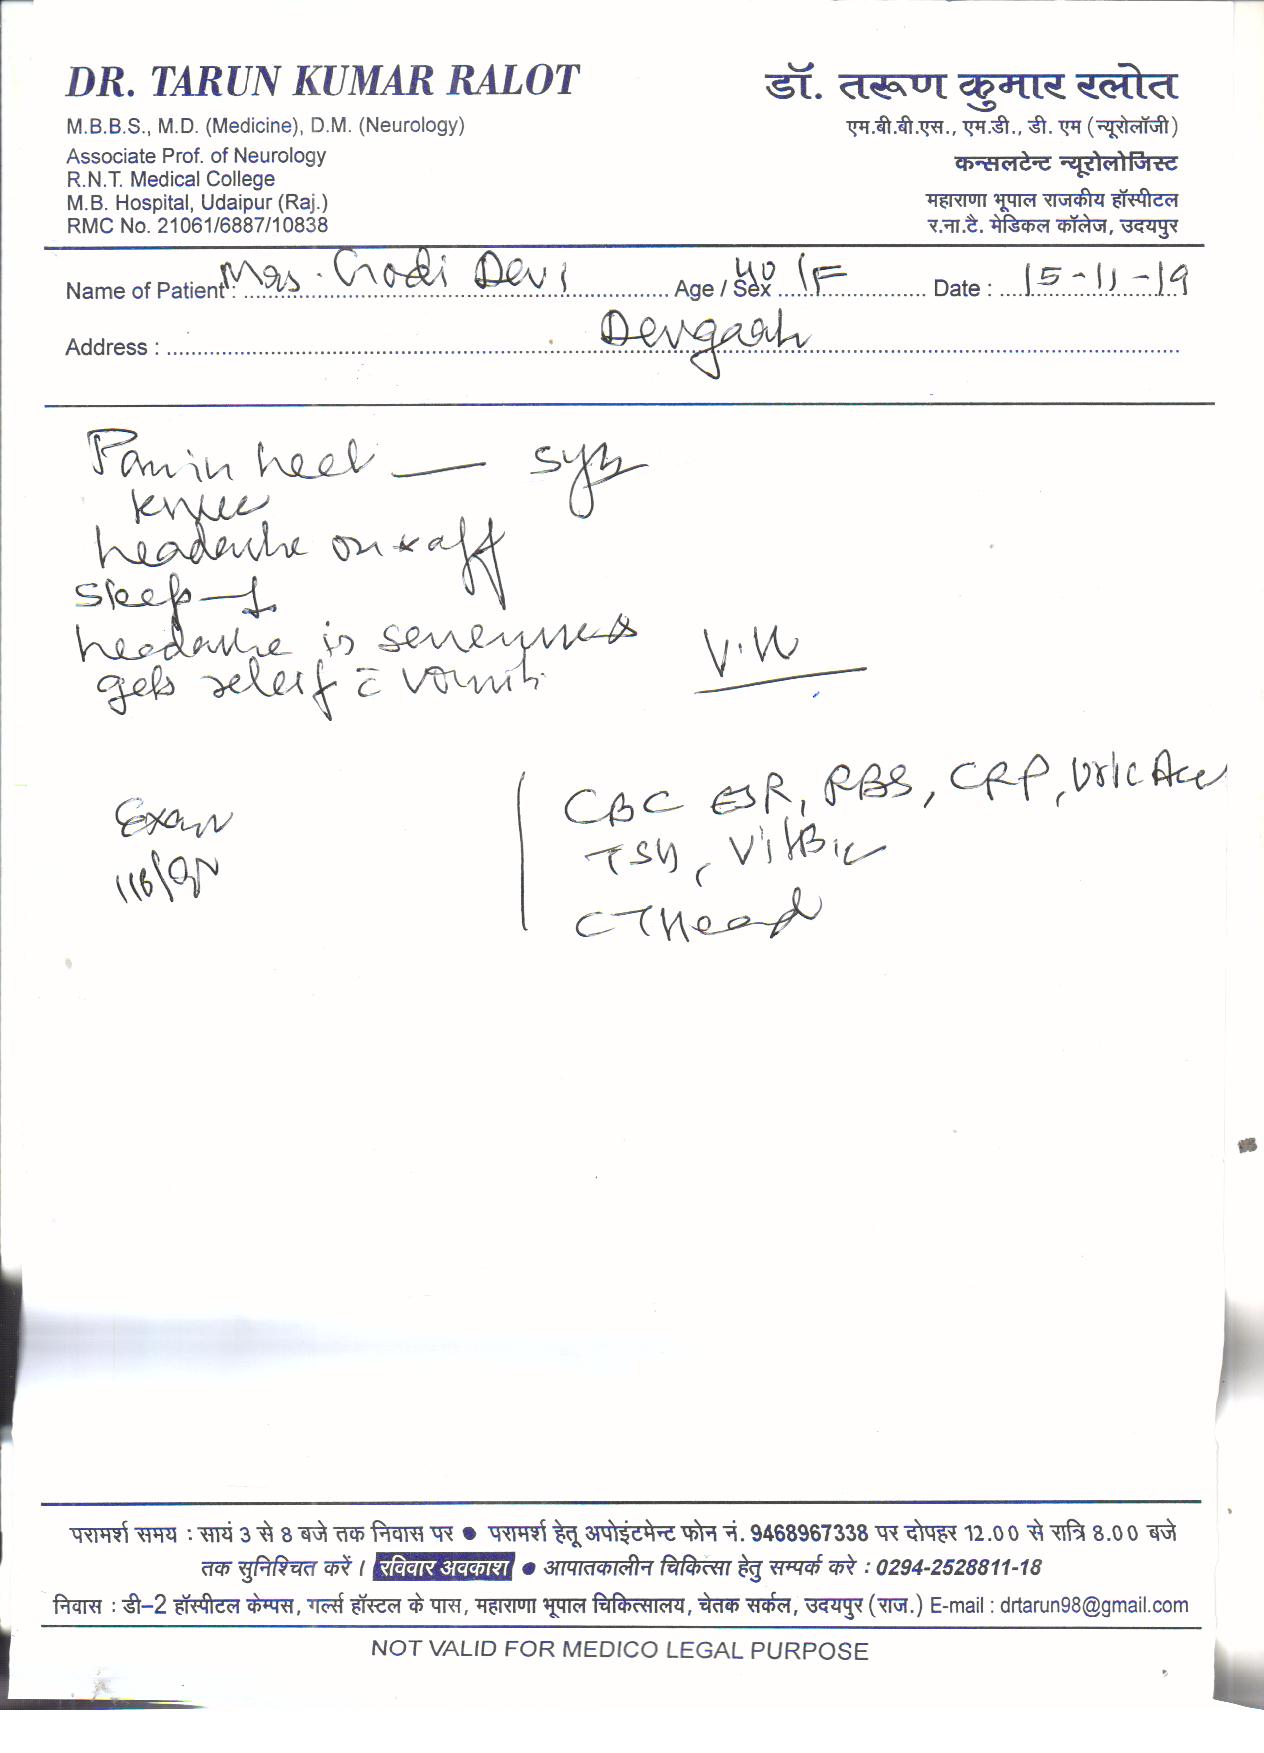 DR. TARUN KUMAR RALOT
M.B.B.S., M.D. (Medicine), D.M. (Neurology)
Associate Prof. of Neurology
R.N.T. Medical College
M.B. Hospital, Udaipur (Raj.)
RMC No. 21061/6887/10838
डॉ. तरूण कुमार रलोत
एम.बी.बी.एस., एम.डी., डी. एम (न्यूरोलॉजी)
कन्सलटेन्ट न्यूरोलोजिस्ट
महाराणा भूपाल राजकीय हॉस्पीटल
र.ना.टै. मेडिकल कॉलेज, उदयपुर
Name of Patient : Mrs. Devi Age / Sex 40 / F Date : 15-11-19
Address : Devgarh
Pain in heel —
knee
headache on & off
Sleep
headache is
gets releif c̄ vomit.
Exam
CBC ESR, RBS, CRP, Uric
TSH, Vit B12
CT Head
परामर्श समय : सायं 3 से 8 बजे तक निवास पर ● परामर्श हेतू अपोइंटमेन्ट फोन नं. 9468967338 पर दोपहर 12.00 से रात्रि 8.00 बजे
तक सुनिश्चित करें । रविवार अवकाश ● आपातकालीन चिकित्सा हेतु सम्पर्क करे : 0294-2528811-18
निवास : डी–2 हॉस्पीटल केम्पस, गर्ल्स हॉस्टल के पास, महाराणा भूपाल चिकित्सालय, चेतक सर्कल, उदयपुर (राज.) E-mail : drtarun98@gmail.com
NOT VALID FOR MEDICO LEGAL PURPOSE